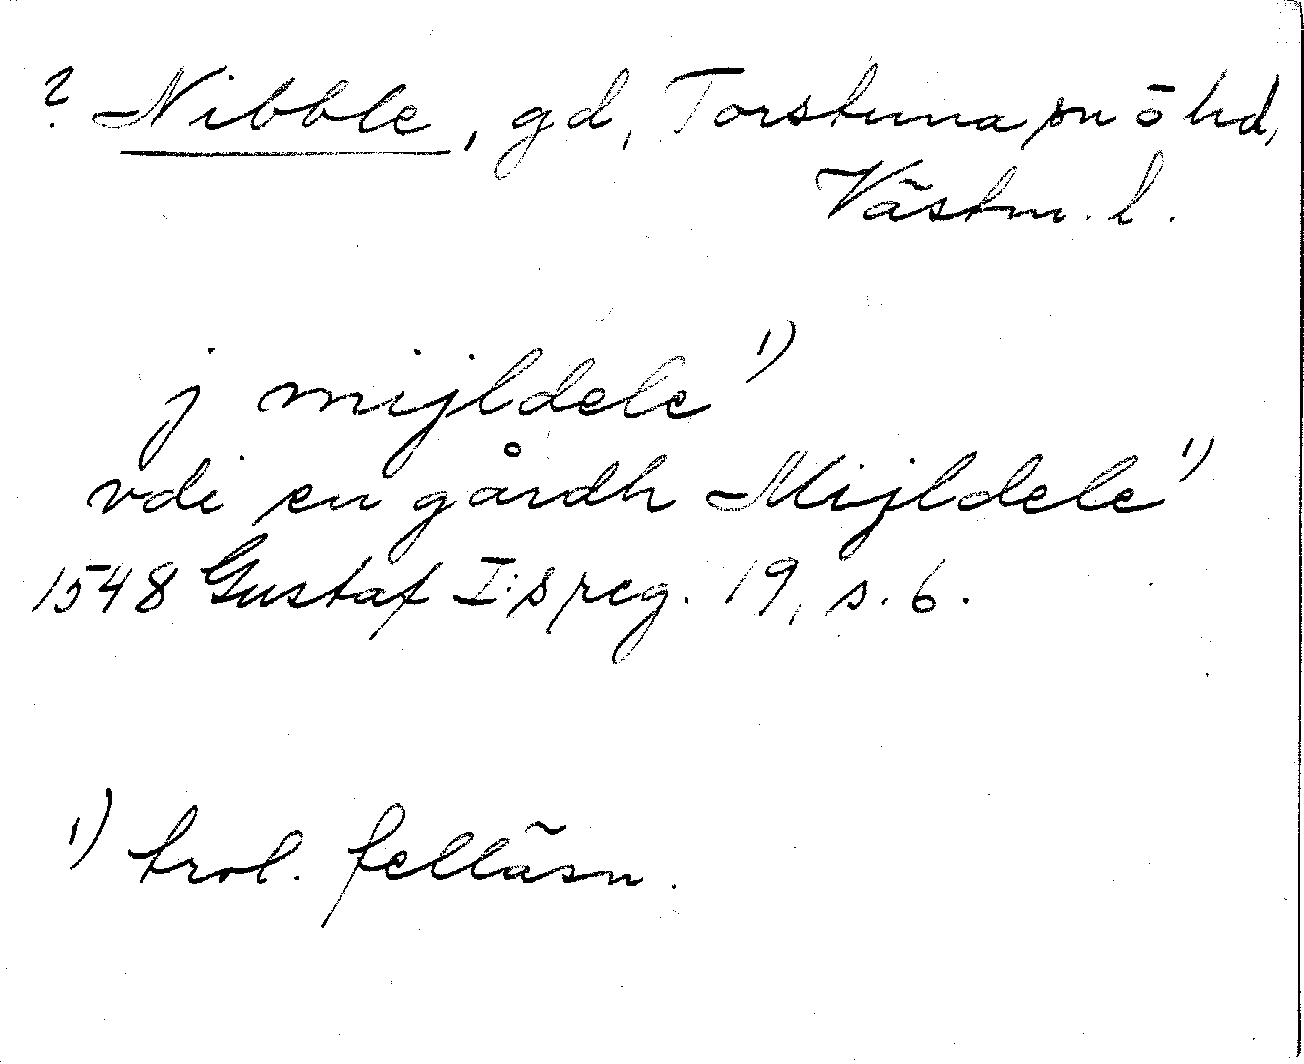 ? Nibble, gd, Torstuna sn ō hd,
Västm. l.
j mijldele 1)
vdi en gårdh Mijldele 1)
1548 Gustaf I:s reg. 19, s. 6.
1) trol. felläsn.